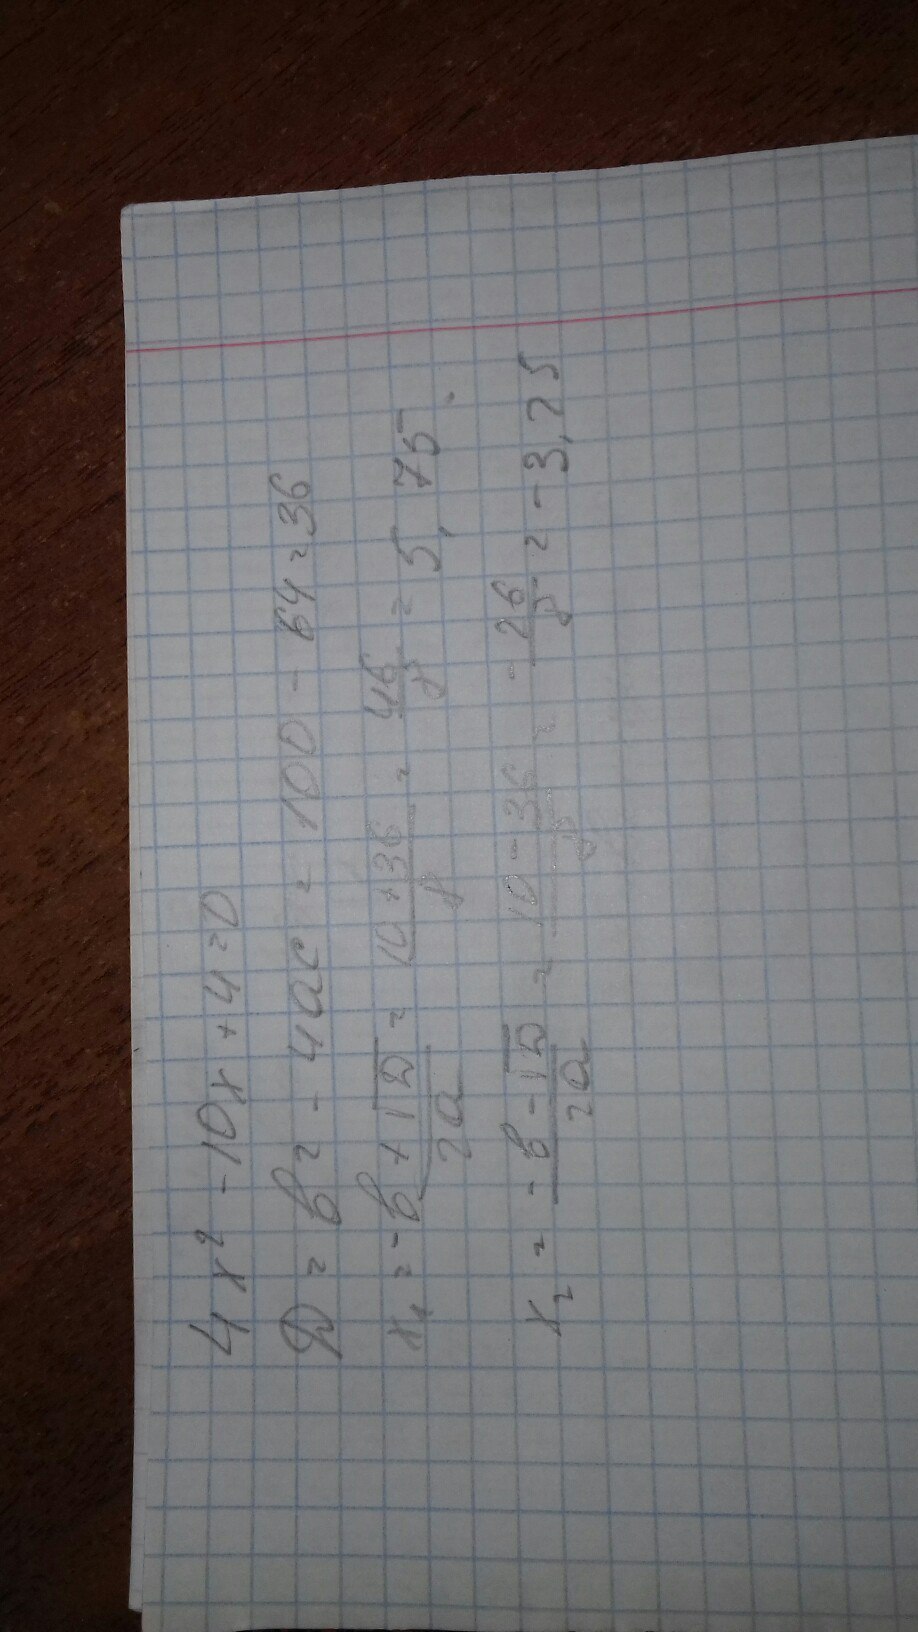 4x² - 10x + 4 = 0
D = b² - 4ac = 100 - 64 = 36
x₁ = -b + √D / 2a = 10 + 36 / 8 = 46 / 8 = 5,75.
x₂ = -b - √D / 2a = 10 - 36 / 8 = -26 / 8 = -3,25